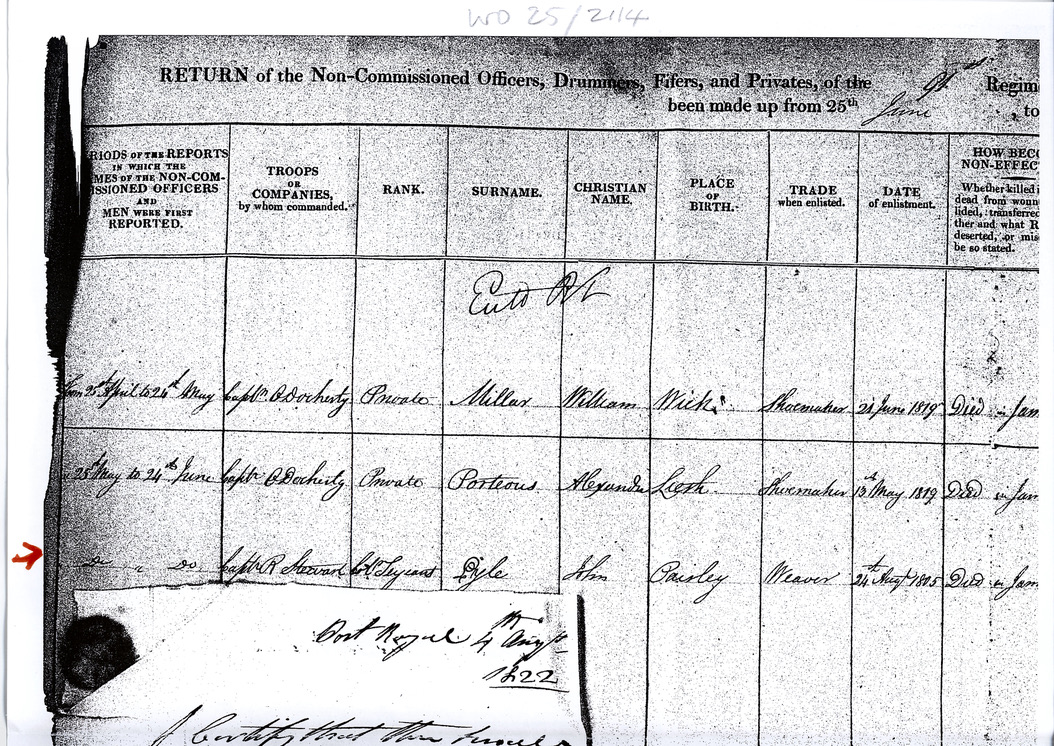 WO 25/2114
RETURN of the Non-Commissioned Officers, Drummers, Fifers, and Privates, of the 91st Regim
been made up from 25th June , to
RIODS OF THE REPORTS
IN WHICH THE
MES OF THE NON-COM-
ISSIONED OFFICERS
AND
MEN WERE FIRST
REPORTED.
TROOPS
OR
COMPANIES,
by whom commanded.
RANK.
SURNAME.
CHRISTIAN
NAME.
PLACE
OF
BIRTH.
TRADE
when enlisted.
DATE
of enlistment.
HOW BECO
NON-EFFEC
Whether killed i
dead from woun
lided, transferred
ther and what R
deserted, or mis
be so stated.
from 25th April to 24th May Captn. ODocherty Private Millar William Wick Shoemaker 21 June 1819 Died in Jam
25th May to 24th June Captn ODocherty Private Porteous Alexander Shoemaker 13th May 1819 Died in Jam
Do " Do Captn R Stewart Serjeant Pyle John Paisley Weaver 24th Augt 1805 Died in Jam
Port Royal 4th Augst
1822
I Certify that the